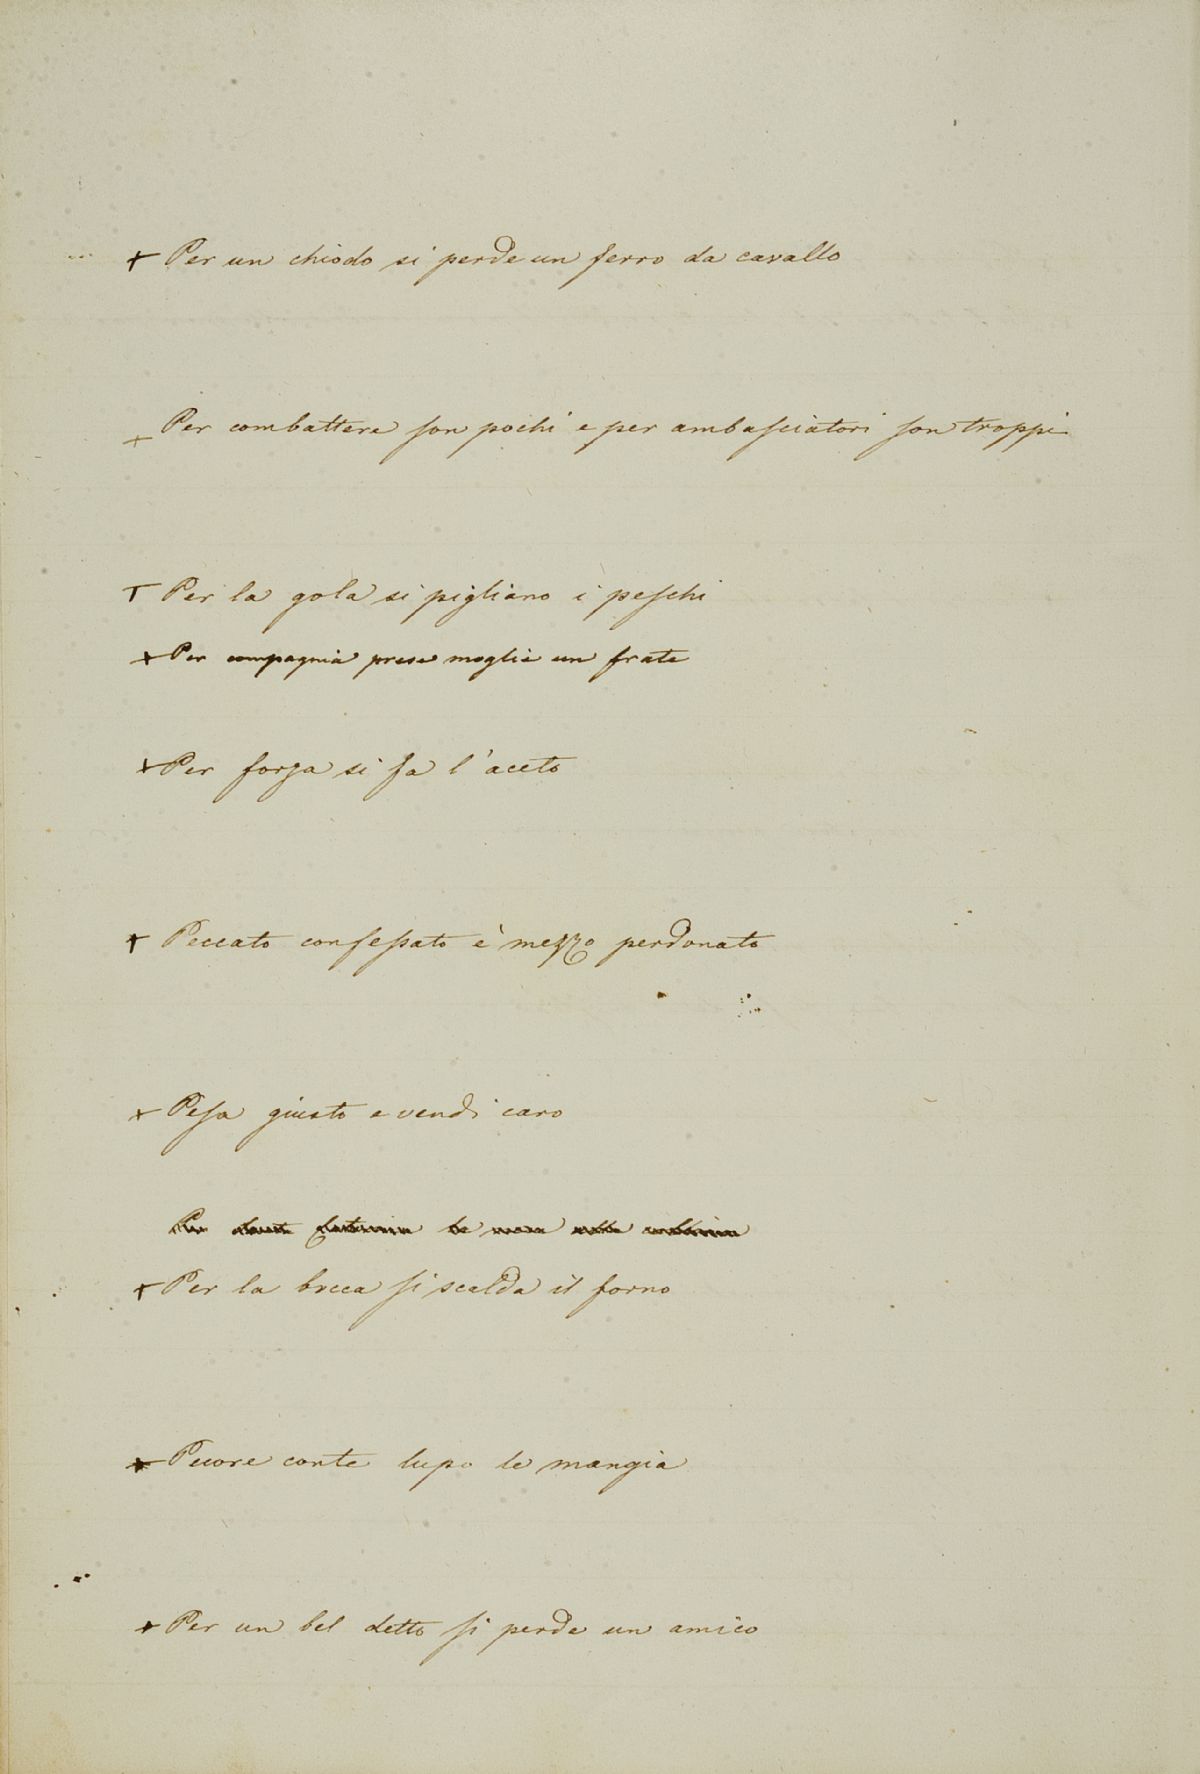 + Per un chiodo si perde un ferro da cavallo
+ Per combattere son pochi e per ambasciatori son troppi
+ Per la gola si pigliano i peschi
+ Per compagnia prese moglie un frate
+ Per forza si fa l'aceto
+ Peccato confessato è mezzo perdonato
+ Pesa giusto e vendi caro
+ Per la bocca si scalda il forno
+ Pecore conte lupo le mangia
+ Per un bel detto si perde un amico